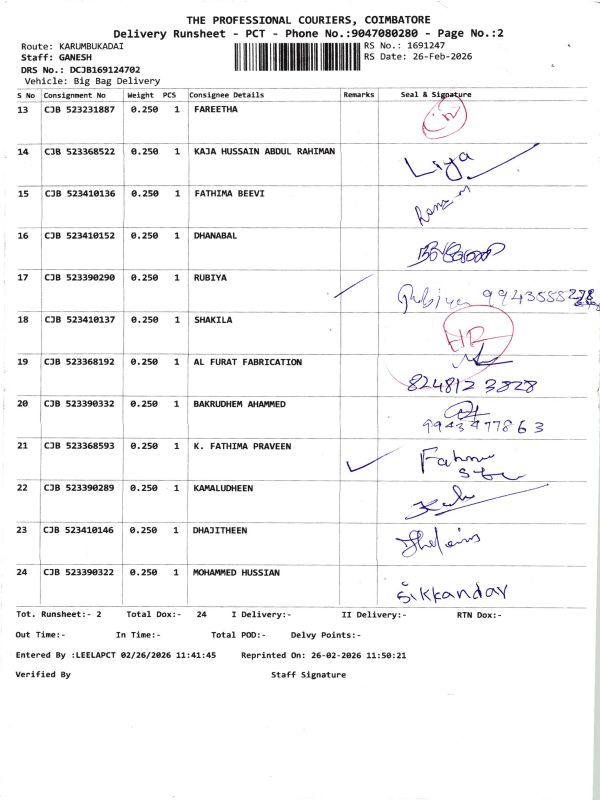 THE PROFESSIONAL COURIERS, COIMBATORE
Delivery Runsheet - PCT - Phone No.:9047080280 - Page No.:2
Route: KARUMBUKADAI RS No.: 1691247
Staff: GANESH RS Date: 26-Feb-2026
DRS No.: DCJB169124702
Vehicle: Big Bag Delivery
S No Consignment No Weight PCS Consignee Details Remarks Seal & Signature
13 CJB 523231887 0.250 1 FAREETHA
14 CJB 523368522 0.250 1 KAJA HUSSAIN ABDUL RAHIMAN Liya
15 CJB 523410136 0.250 1 FATHIMA BEEVI
16 CJB 523410152 0.250 1 DHANABAL
17 CJB 523390290 0.250 1 RUBIYA Rubiya
18 CJB 523410137 0.250 1 SHAKILA HR
19 CJB 523368192 0.250 1 AL FURAT FABRICATION
824812 3828
20 CJB 523390332 0.250 1 BAKRUDHEM AHAMMED
9943477863
21 CJB 523368593 0.250 1 K. FATHIMA PRAVEEN
22 CJB 523390289 0.250 1 KAMALUDHEEN
23 CJB 523410146 0.250 1 DHAJITHEEN
24 CJB 523390322 0.250 1 MOHAMMED HUSSIAN
Sikkandar
Tot. Runsheet:- 2 Total Dox:- 24 I Delivery:- II Delivery:- RTN Dox:-
Out Time:- In Time:- Total POD:- Delvy Points:-
Entered By :LEELAPCT 02/26/2026 11:41:45 Reprinted On: 26-02-2026 11:50:21
Verified By Staff Signature